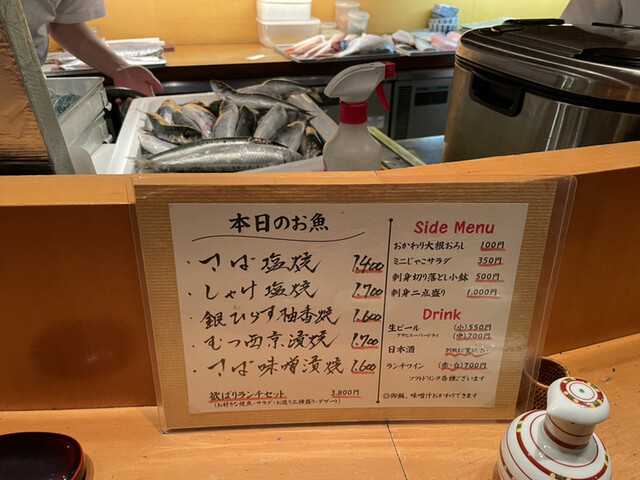 本日のお魚
・さば塩焼 1.400
・しゃけ塩焼 1.700
・銀ひらす柚香焼 1.600
・むつ西京漬焼 1.700
・さば味噌漬焼 1.600
欲ばりランチセット 3,800円
(お好きな焼魚・サラダ・お造り三種盛り・デザート)
Side Menu
おかわり大根おろし 100円
ミニじゃこサラダ 350円
刺身切り落とし小鉢 500円
刺身二点盛り 1,000円
Drink
生ビール (小)550円
アサヒスーパードライ (中)700円
日本酒
ランチワイン (赤・白)700円
ソフトドリンク各種ございます
◎御飯、味噌汁おかわりできます